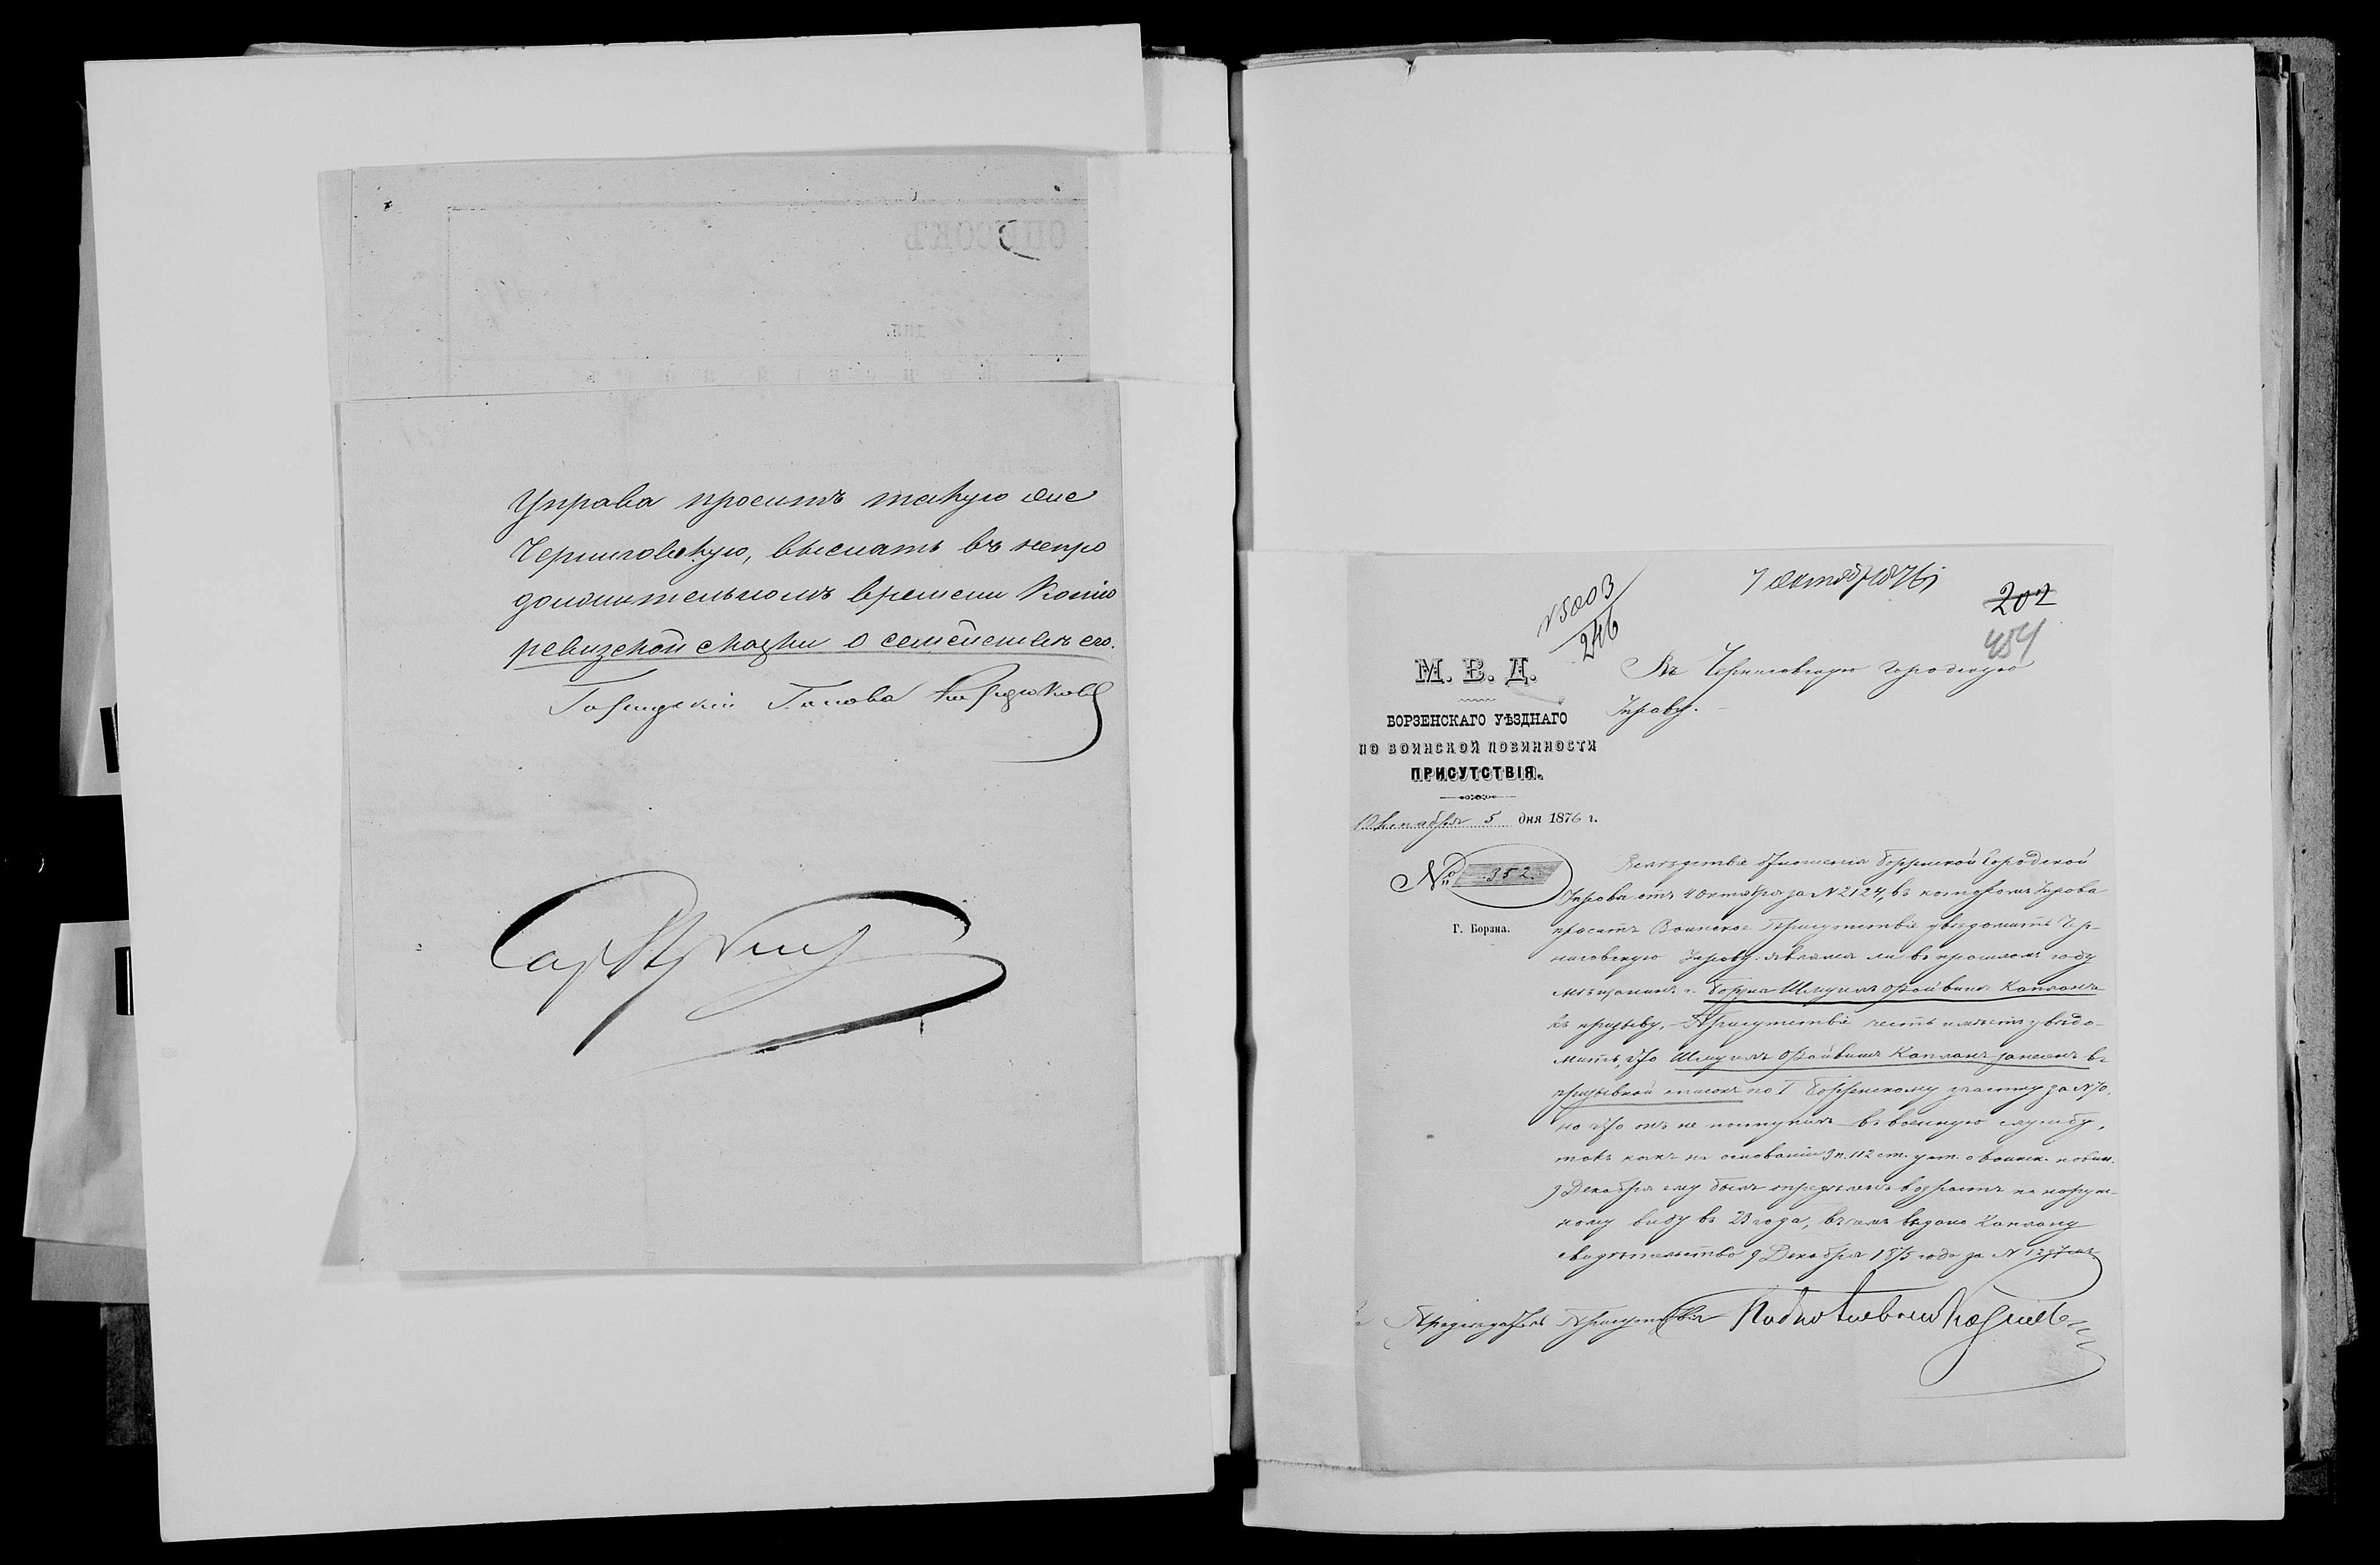 Управа проситъ такую же
Черниговскую, выслать въ непро
должительномъ времени Копію
ревизской сказки о семействѣ его.
Городской Голова
7 Октября 1876
№5003
246
202
454
М. В. Д.
Въ Черниговскую городскую
Управу.
БОРЗЕНСКАГО УѢЗДНАГО
ПО ВОИНСКОЙ ПОВИННОСТИ
ПРИСУТСТВІЯ.
Октября 5 дня 1876 г.
№ 352.
Г. Борзна.
Вслѣдствіе отношенія Борзенской Городской
Управы отъ 4 Октября за №2124, въ которомъ Управа
проситъ Воинское Присутствіе увѣдомить Чер-
ниговскую Управу: являлся ли въ прошломъ году
мѣщанинъ г. Борзна Шмуилъ Файвишъ Капланъ
къ призыву, – Присутствіе честь имѣетъ увѣдо-
мить, что Шмуилъ Файвишъ Капланъ занесенъ въ
призывной списокъ по I Борзенскому участку за №70,
но что онъ не поступилъ въ военную службу,
такъ какъ на основаніи 3 п. 112 ст. уст. о воинск. повин.
9 Декабря ему былъ опредѣленъ возрастъ по наруж-
ному виду въ 23 года, въ чемъ выдано Каплану
свидѣтельство 9 Декабря 1875 года за №
Предсѣдатель Присутствія
СПИСОКЪ